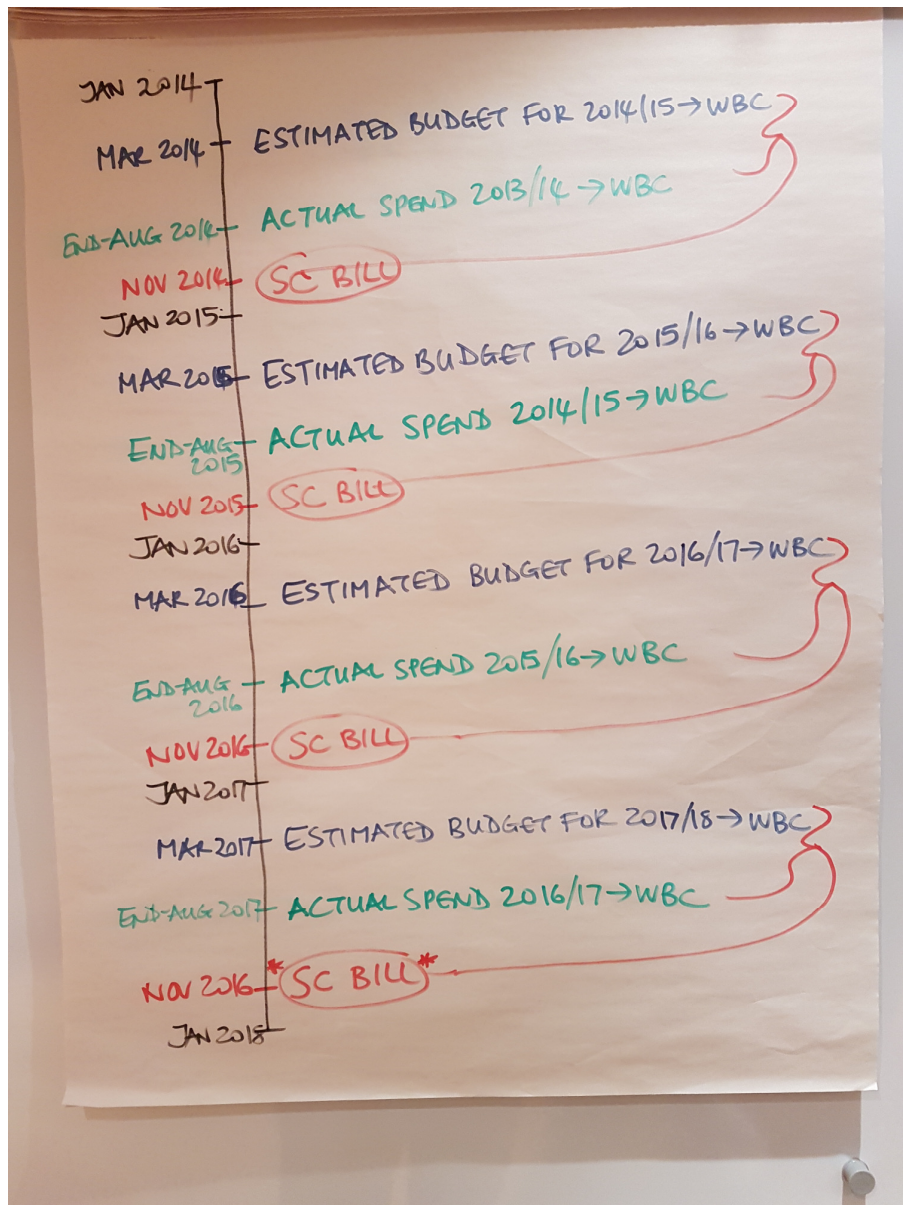 JAN 2014
MAR 2014 ESTIMATED BUDGET FOR 2014/15→WBC
END-AUG 2014 ACTUAL SPEND 2013/14→WBC
NOV 2014 SC BILL
JAN 2015
MAR 2015 ESTIMATED BUDGET FOR 2015/16→WBC
END-AUG 2015 ACTUAL SPEND 2014/15→WBC
NOV 2015 SC BILL
JAN 2016
MAR 2016 ESTIMATED BUDGET FOR 2016/17→WBC
END-AUG 2016 ACTUAL SPEND 2015/16→WBC
NOV 2016 SC BILL
JAN 2017
MAR 2017 ESTIMATED BUDGET FOR 2017/18→WBC
END-AUG 2017 ACTUAL SPEND 2016/17→WBC
NOV 2016 *SC BILL*
JAN 2018